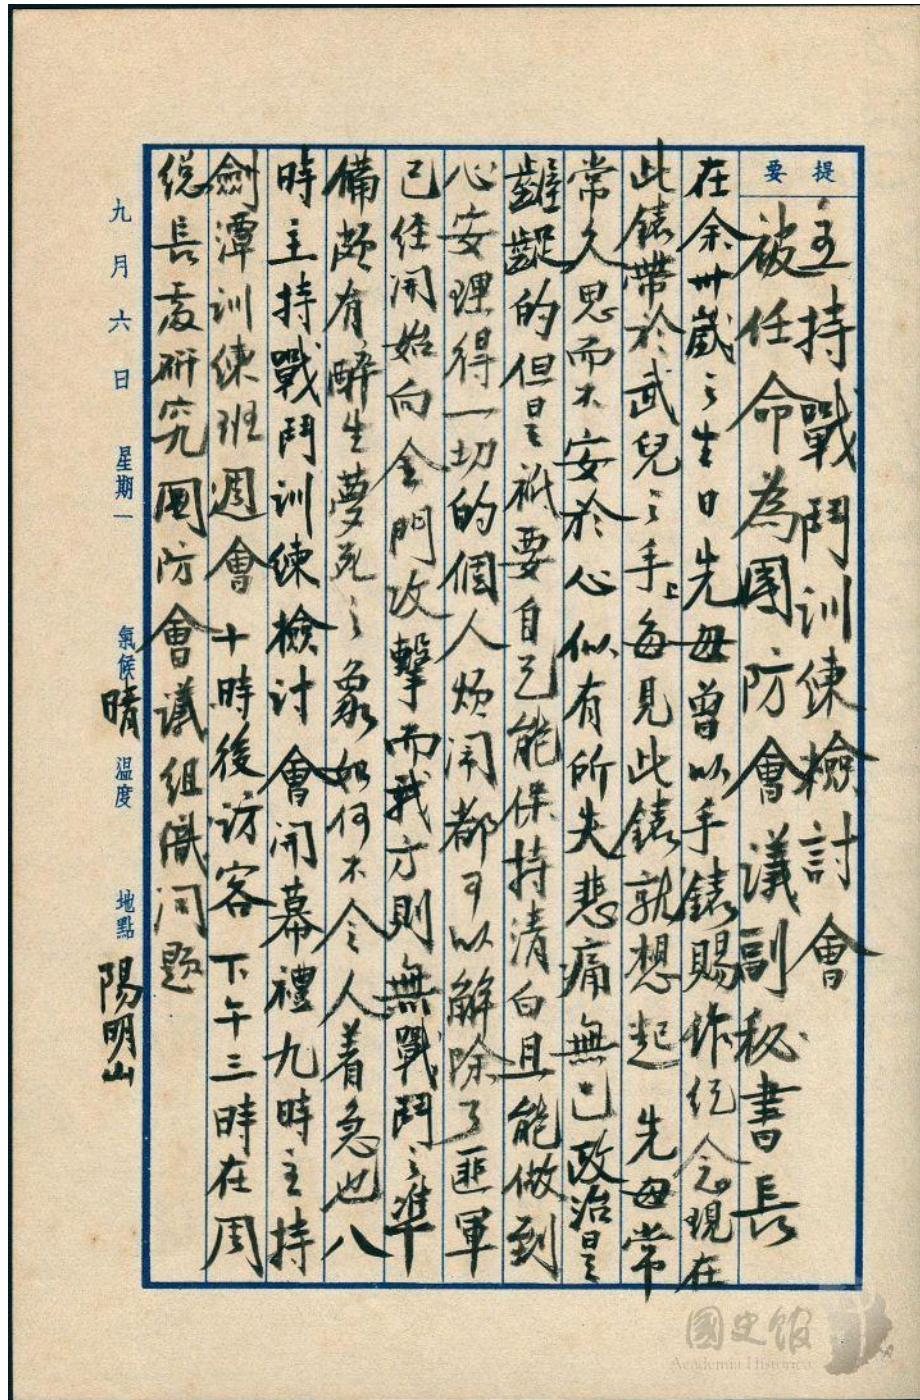 提要
主持戰鬥訓練檢討會
被任命為國防會議副秘書長
在余卅歲之生日先母曾以手錶賜作紀念現在
此錶帶於武兒之手上每見此錶就想起 先母常
常久思而不安於心似有所失悲痛無已政治是
齷齪的但是祇要自己能保持清白且能做到
心安理得一切的個人煩鬧都可以解除了匪軍
已經開始向金門攻擊而我方則無戰鬥之準
備頗有醉生夢死之象如何不令人着急也八
時主持戰鬥訓練檢討會開幕禮九時主持
劍潭訓練班週會十時後訪客下午三時在周
總長處研究國防會議組織问题
九月六日 星期一 氣候 晴 溫度 地點 陽明山
國史館
Academia Historica